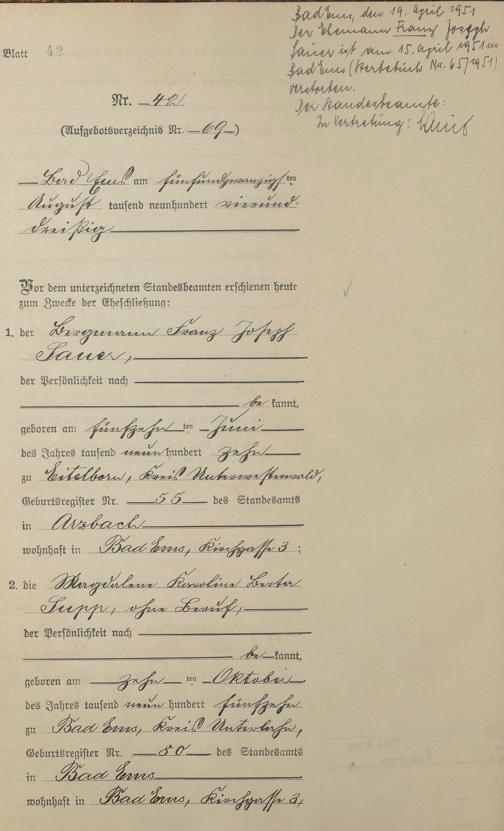 Bad Ems, den 19. April 1951
Der Ehemann Franz Joseph
Sauer ist am 15. April 1951 in
Bad Ems (Sterbebuch Nr. 65/1951)
verstorben.
Der Standesbeamte:
In Vertretung:
Blatt 42
Nr. 42
(Aufgebotsverzeichnis Nr. 69)
Bad Ems am fünfundzwanzigsten
August tausend neunhundert vierund-
dreißig
Vor dem unterzeichneten Standesbeamten erschienen heute
zum Zwecke der Eheschließung:
1. der Bergmann Franz Joseph
Sauer,
der Persönlichkeit nach
be kannt,
geboren am fünfzehn ten Juni
des Jahres tausend neun hundert zehn
zu Eitelborn, Kreis Unterwesterwald,
Geburtsregister Nr. 55 des Standesamts
in Arzbach
wohnhaft in Bad Ems, Kirchgasse 3;
2. die Magdalene Karoline Berta
Supp, ohne Beruf,
der Persönlichkeit nach
be kannt,
geboren am zehn ten Oktober
des Jahres tausend neun hundert fünfzehn
zu Bad Ems, Kreis Unterlahn,
Geburtsregister Nr. 50 des Standesamts
in Bad Ems
wohnhaft in Bad Ems, Kirchgasse 3,